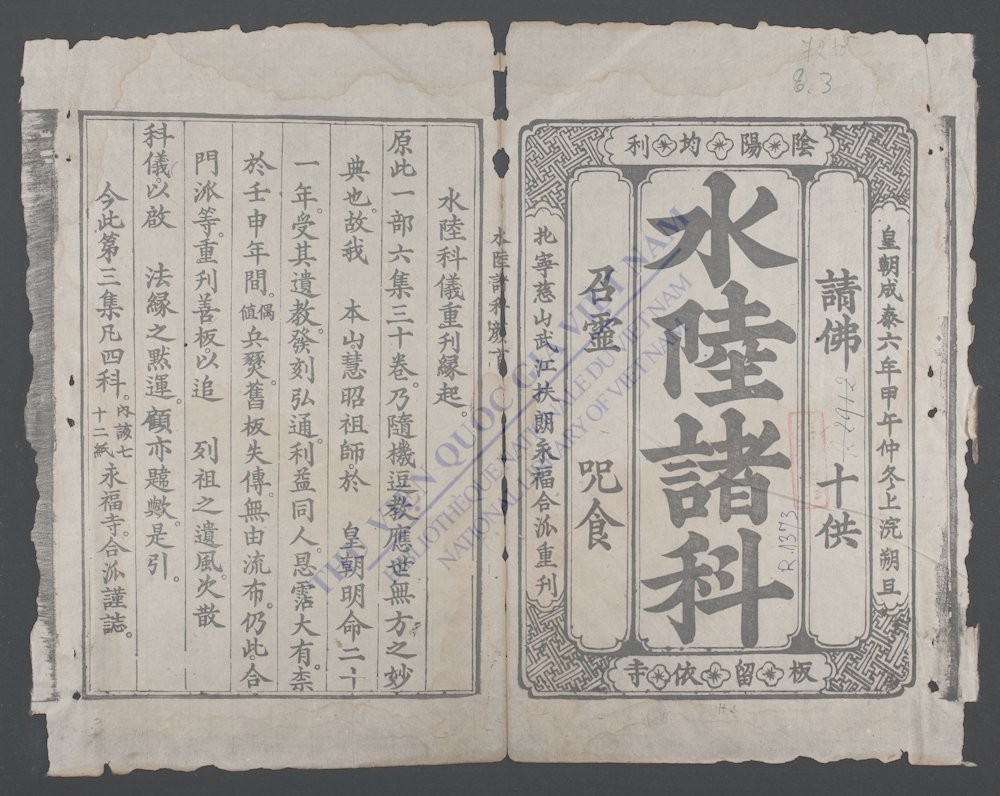 陰陽均利
皇朝成泰六年甲午仲冬上浣朔旦
請佛 十供
水陸諸科
召靈 咒食
北寧慈山武江扶朗永福合派重刊
板留依寺
水陸諸科
水陸科儀重刊緣起。
原此一部六集三十卷。乃隨機逗教。應世無方之妙
典也。故我 本山慧昭祖師。於 皇朝明命二十
一年。受其遺教。發刻弘通。利益同人。恩霑大有。柰
於壬申年間。偶值兵燹。舊板失傳。無由流布。仍此。合
門派等。重刊善板。以追 列祖之遺風。次散
科儀。以啟 法緣之點運。顧亦韙歟。是引。
今此第三集凡四科。內該七十二紙 永福寺。合派謹誌。
8.3
R.1373
2912
THƯ VIỆN QUỐC GIA VIỆT NAM
BIBLIOTHÈQUE NATIONALE DU VIETNAM
NATIONAL LIBRARY OF VIETNAM